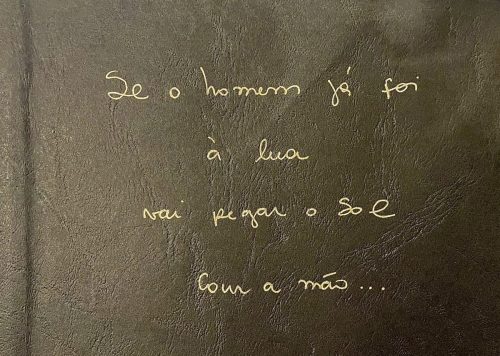 Se o homem já foi
à lua
vai pegar o sol
com a mão...